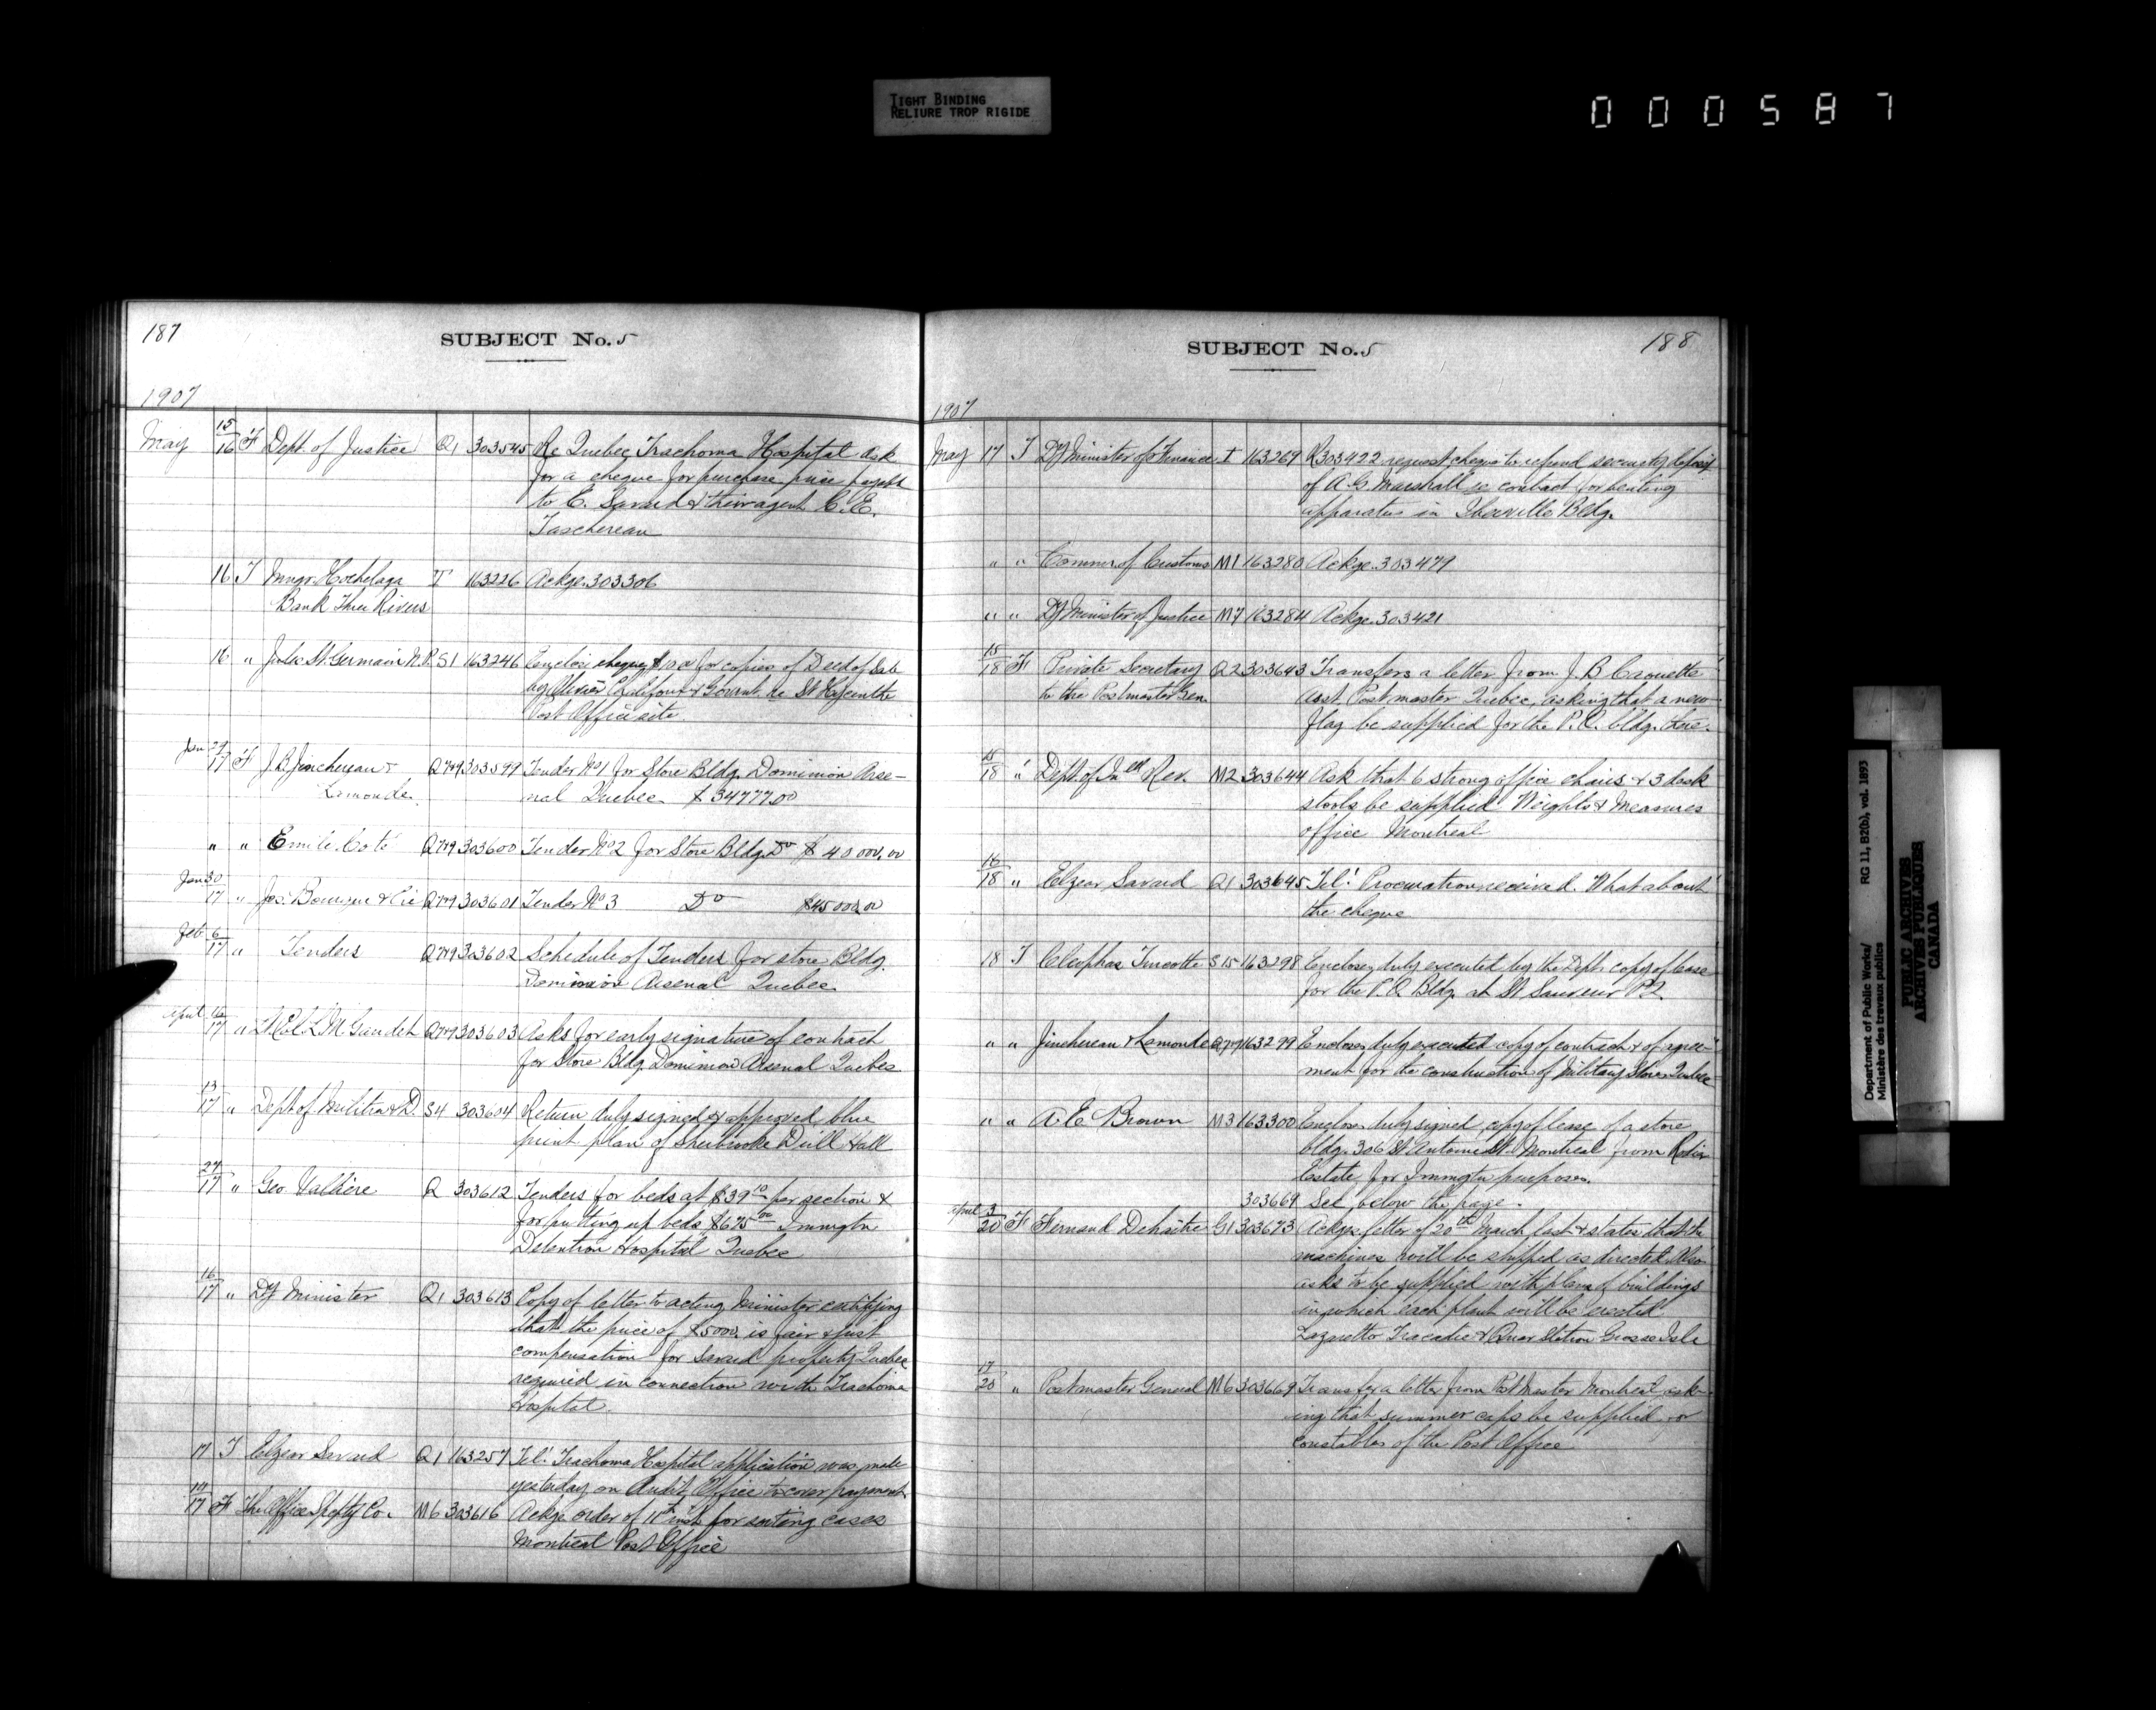 TIGHT BINDING
RELIURE TROP RIGIDE
000587
187
SUBJECT No. 5
1907
May 15/16 F Dept. of Justice Q1 303545 Re Quebec Trachoma Hospital ask
for a cheque for purchase price payable
to E. Savard & their agent C. E.
Taschereau
16 T Mngr. Hochelaga T 163226 Ackge. 303306
Bank Three Rivers
16 " Jules St. Germain N.P. S1 163246 Enclose cheque $ for copies of Deed of Sale
by Olivier & Govmt. re St Hyacinthe
Post Office site.
Jan 29/17 F J.B. Jinchereau & Q749 303599 Tender No 1 for Store Bldg. Dominion Arse-
Lemonde. nal Quebec $34777.00
" " Emile Coté Q749 303600 Tender No 2 for Store Bldg. Do $40000.00
Jan 30/17 " Jos. & Cie Q749 303601 Tender No 3 Do $45000.00
Feb 6/17 " Tenders Q749 303602 Schedule of Tenders for store Bldg.
Dominion Arsenal Quebec.
April 17 " Lt Col. L. M. Gaudet Q749 303603 Asks for early signature of contract
for Store Bldg Dominion Arsenal Quebec
13/17 " Dept of Militia & D. S4 303604 Return duly signed & approved blue
print plan of Sherbrooke Drill Hall
27/17 " Geo. Valliere Q 303612 Tenders for beds at $39 10 per section &
for putting up beds $675 00 Immgtn
Detention Hospital Quebec
16/17 " Dy Minister Q1 303613 Copy of letter to acting Minister certifying
that the price of $5000. is fair & just
compensation for Savard property Quebec
required in connection with Trachoma
Hospital.
17 T Elzear Savard Q1 163257 Tel. Trachoma Hospital application was made
yesterday on Audit Office to cover payment.
17 F The Office Spclty Co. M6 303616 Ackge order of 11th inst. for sorting cases
Montreal Post Office
188
SUBJECT No. 5
1907
May 17 T Dy Minister of Finance I 163269 R303422 request cheque to refund security deposit
of A. G. Marshall re contract for heating
apparatus in Iberville Bldg.
" " Commr. of Customs M1 163280 Ackge. 303479
" " Dy Minister of Justice M7 163284 Ackge. 303421
15/18 F Private Secretary Q2 303643 Transfers a letter from J. B Caouette
to the Postmaster Gen. asst. Postmaster Quebec, asking that a new
flag be supplied for the P.O. bldg. there.
15/18 " Dept. of Inld Rev. M2 303644 Ask that 6 strong office chairs & 3 desk
stools be supplied Weights & Measures
office Montreal
16/18 " Elzear Savard Q1 303645 Tel. Procuration received. What about
the cheque
18 T Cleophas Turcotte S15 163298 Encloses duly executed by the Dept. copy of lease
for the P.O. Bldg. at St Sauveur P.Q.
" " Jinchereau & Lemonde Q749 163299 Encloses duly executed copy of contract & of agree-
ment for the construction of Military Stores Quebec
" " A. E. Brown M3 163300 Encloses duly signed, copy of lease of a store
bldg. 306 St Antoine St. Montreal from
Estate for Immgtn purposes.
303669 See below the page.
April 3/20 F Fernand Dehaitre G1 303673 Ackge. letter of 20th March last & states that the
machines will be shipped as directed. Also
asks to be supplied with plans of buildings
in which each plant will be erected.
Lazaretto Tracadie & Quar Station Grosse Isle
17/20 " Postmaster General M6 303669 Transfer a letter from Post Master Montreal ask-
ing that summer caps be supplied for
constables of the Post Office
Department of Public Works/
Ministère des travaux publics
RG 11, B2(b), vol. 1893
PUBLIC ARCHIVES
ARCHIVES PUBLIQUES
CANADA